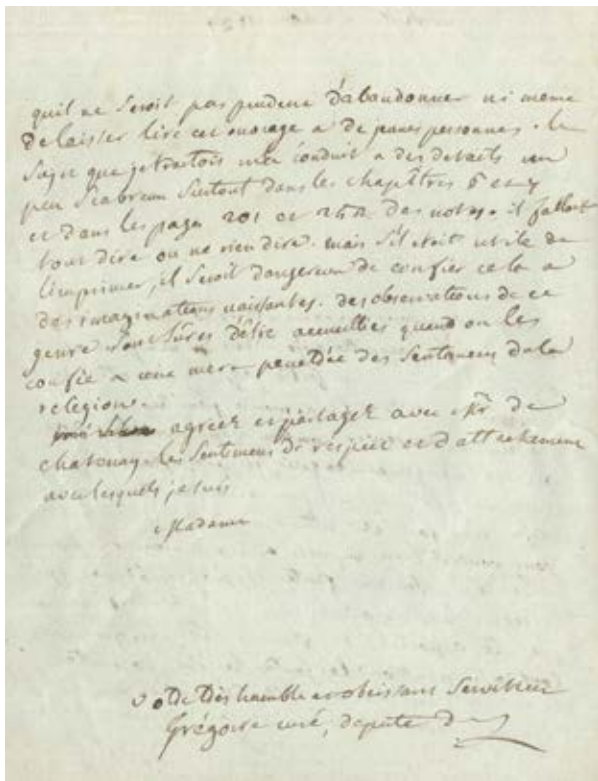 quil ne seroit pas prudent d'abandonner ni meme
de laisser lire cet ouvrage a de jeunes personnes. le
sujet que je traitois m'a conduit a des details un
peu scabreux surtout dans les chapîtres 6 et 7
et dans les pages 201 et des notes. il falloit
tout dire ou ne rien dire. mais s'il etoit utile de
l'imprimer, il seroit dangereux de confier cela a
des imaginations naissantes. des observations de ce
genre sont sûres d'être accueillies quand on les
confie a une mere penetrée des sentimens de la
religion.
agréez et partagez avec Mr de
chatenay les sentimens de respect et d'attachement
avec lesquels je suis
Madame
votre très humble et obeissant serviteur
Grégoire curé, deputé de